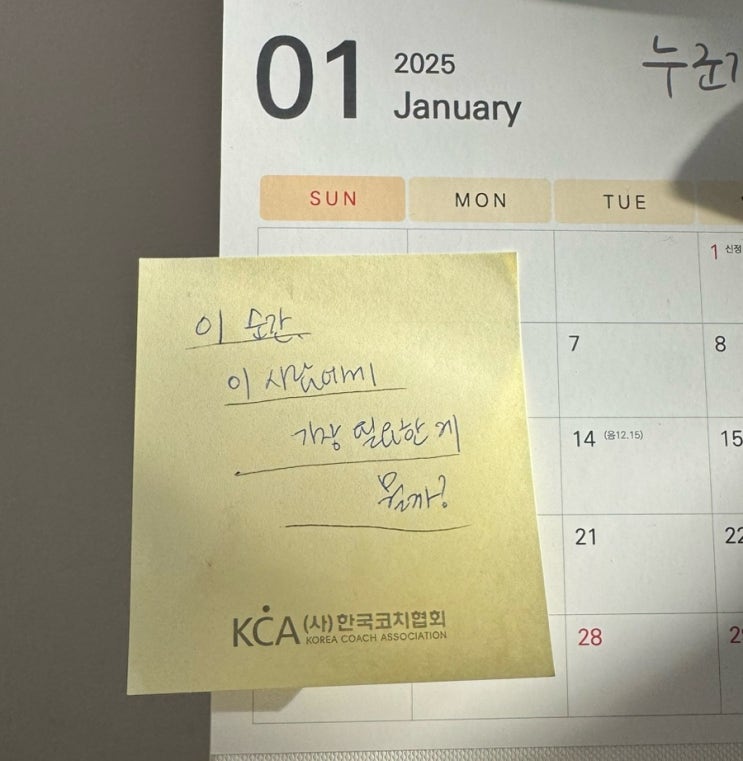 01
2025
January
SUN MON TUE
1 신정
7 8
14 (음12.15) 15
21 22
28
이 순간,
이 사람에게
가장 필요한 게
뭘까?
KCA (사)한국코치협회
KOREA COACH ASSOCIATION